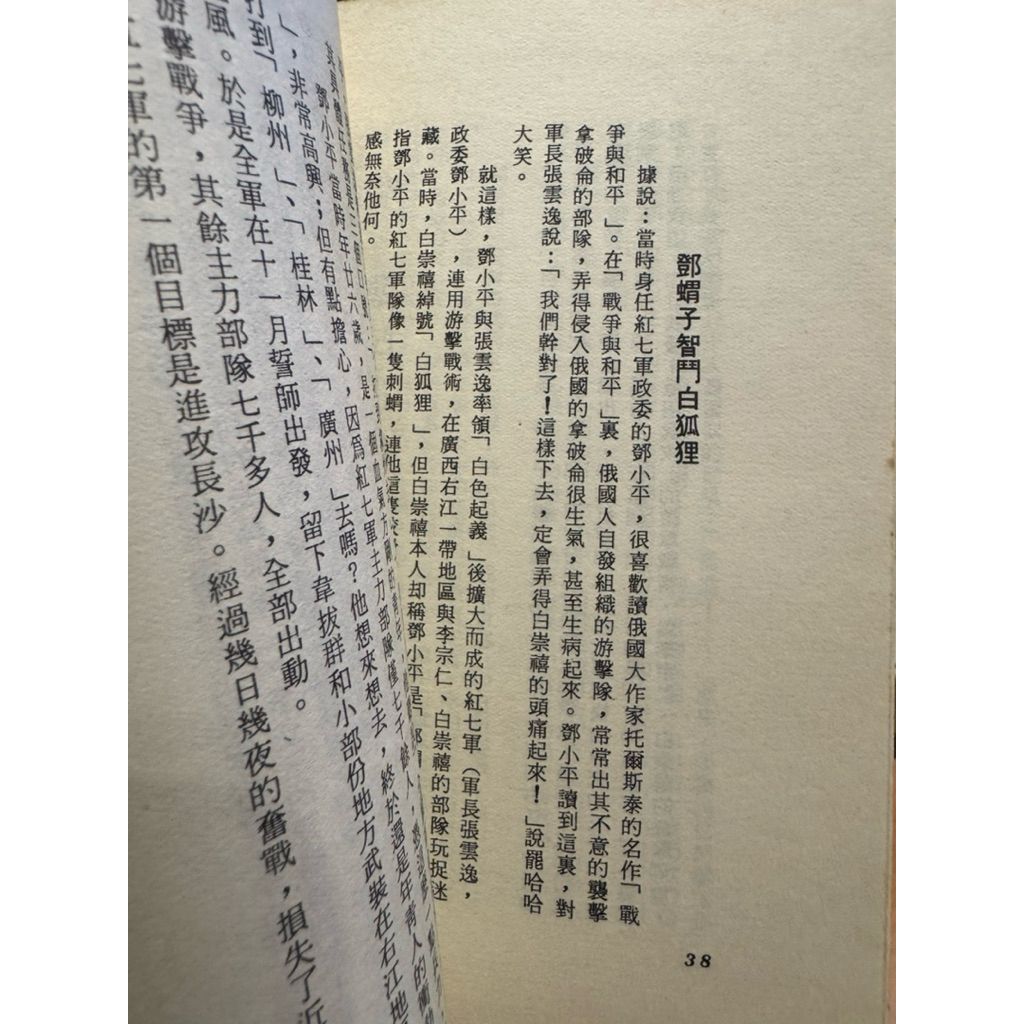 鄧蝟子智鬥白狐狸
據說：當時身任紅七軍政委的鄧小平，很喜歡讀俄國大作家托爾斯泰的名作「戰
爭與和平」。在「戰爭與和平」裏，俄國人自發組織的游擊隊，常常出其不意的襲擊
拿破侖的部隊，弄得侵入俄國的拿破侖很生氣，甚至生病起來。鄧小平讀到這裏，對
軍長張雲逸說：「我們幹對了！這樣下去，定會弄得白崇禧的頭痛起來！」說罷哈哈
大笑。
就這樣，鄧小平與張雲逸率領「白色起義」後擴大而成的紅七軍（軍長張雲逸，
政委鄧小平），連用游擊戰術，在廣西右江一帶地區與李宗仁、白崇禧的部隊玩捉迷
藏。當時，白崇禧綽號「白狐狸」，但白崇禧本人却稱鄧小平是「
指鄧小平的紅七軍隊像一隻刺蝟，連他這隻
感無奈他何。
38
鄧小平當時年廿六歲，是一個血氣方剛的青年，
」，非常高興；但有點擔心，因爲紅七軍主力部隊僅七千餘人，
打到「柳州」、「桂林」、「廣州」去嗎？他想來想去，終於還是年青人的衝
風。於是全軍在十一月誓師出發，留下韋拔群和小部份地方武裝在右江地
游擊戰爭，其餘主力部隊七千多人，全部出動。
七軍的第一個目標是進攻長沙。經過幾日幾夜的奮戰，損失了近